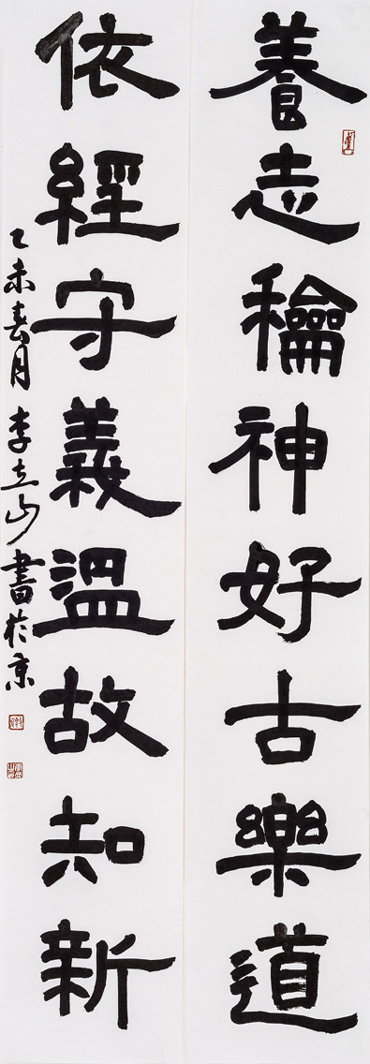 養志龢神好古樂道
依經守義溫故知新
乙未春月李立山書於京